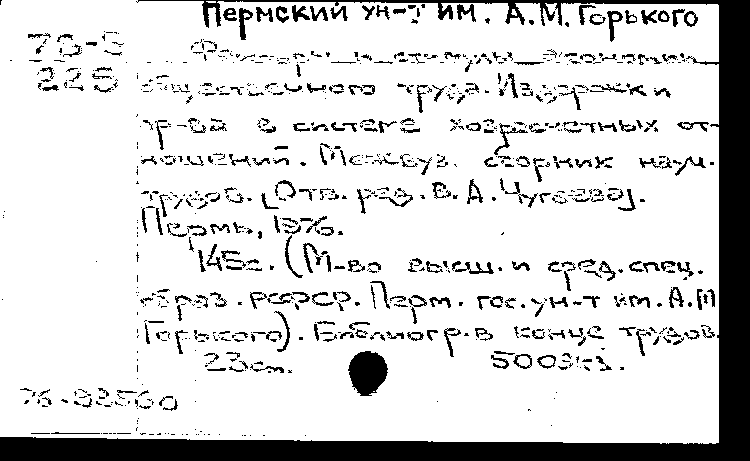 Пермский ун-т им. А.М. Горького
76-8 Факторы и стимулы экономии
225 общественного труда. Издержки
пр-ва в системе хозрасчетных от-
ношений. Межвуз. сборник науч.
трудов. [Отв. ред. В. А. Чугаева].
Пермь, 1976.
145с. (М-во высш. и сред. спец.
образ. РСФСР. Перм. гос. ун-т им. А.М
Горького). Библиогр. в конце трудов.
23см. 500экз.